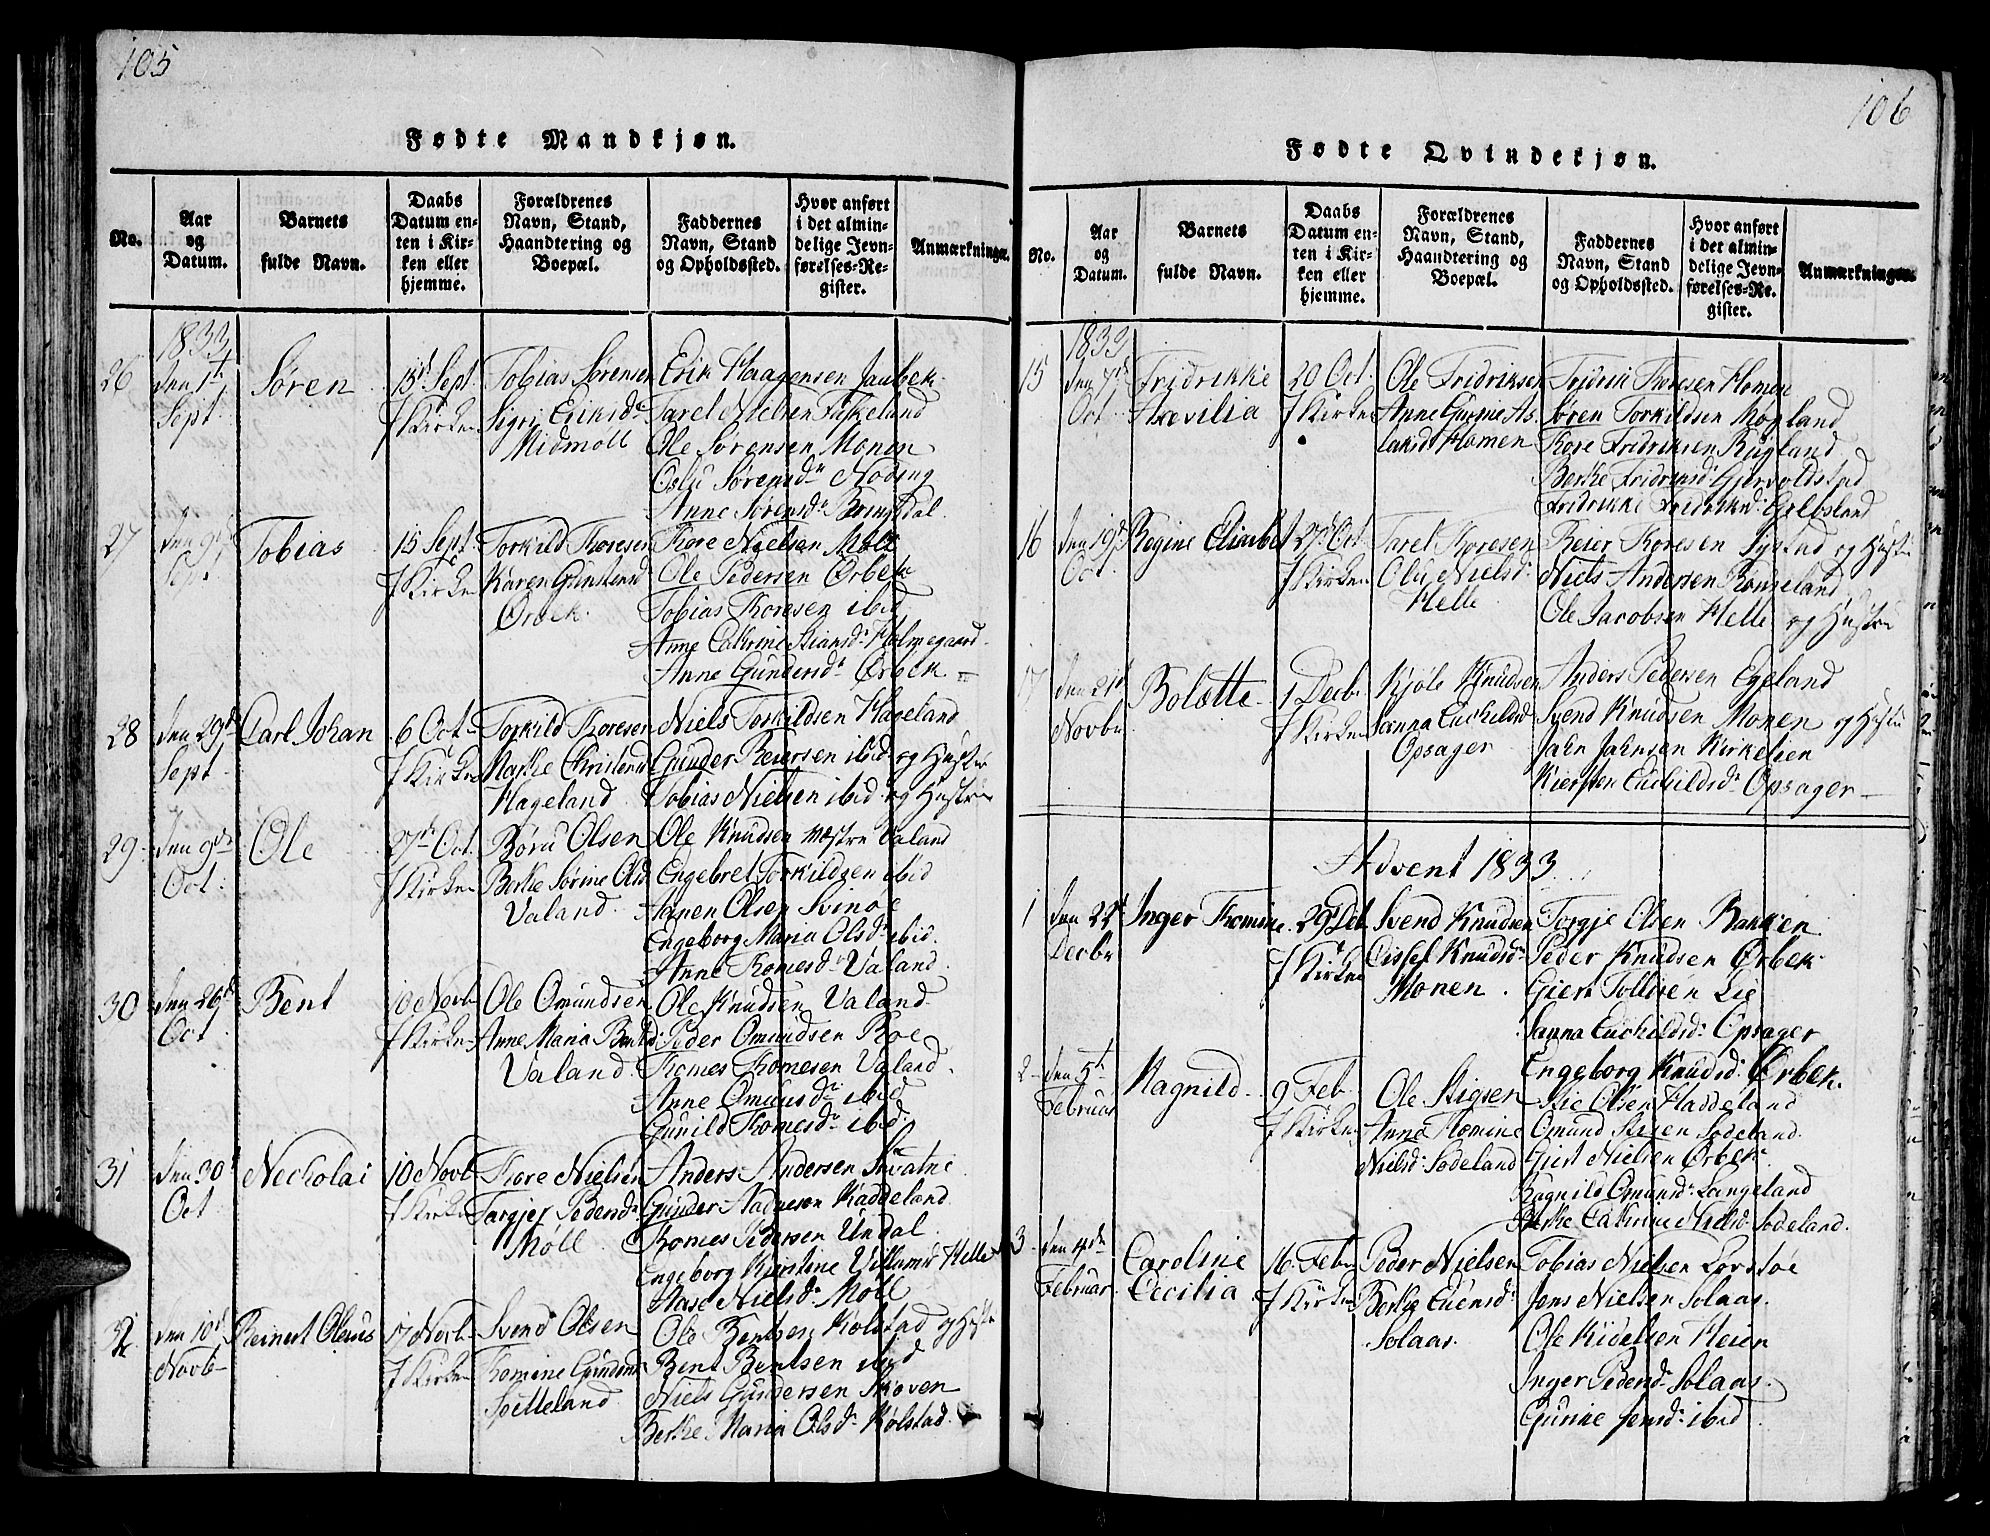 105
Fødte Mandkjøn.
No.
Aar og Datum.
Barnets fulde Navn.
Daabs Datum enten i Kirken eller hjemme.
Forældrenes Navn, Stand, Haandtering og Boepæl.
Faddernes Navn, Stand og Opholdssted.
Hvor anført i det almindelige Jevnførelses-Register.
Anmærkninger.
1833
26 den 1t Sept. Søren 15d Sept. I Kirken
Tobias Sørensen
Sigri Eriksdr
Midmoll
Erik Haagensen Jaubek
Tarel Nielsen Fiskeland
Ole Sørensen Monen
Oslu Sørensdr Noding
Anne Sørensdr Bringsdal
27 den 9d Sept Tobias 15 Sept. I Kirken
Torkild Thoresen
Karen Gundersd
Ørbek.
Thore Nielsen Moll
Ole Pedersen Ørbek
Tobias Thoresen ibid
Anne Cathrine Stiansdr Holmegaard
Anne Gundersdr Ørbek
28 den 29d Sept. Carl Johan 6 Oct. I Kirken
Torkild Thoresen
Marthe Christensd
Hageland
Niels Torkildsen Hageland
Gunder Reiersen ibid og Hustru
Tobias Nielsen ibid og Hustru
29 den 9de Oct. Ole 27de Oct. I Kirken
Børu Olsen
Berthe Sørine Olsd
Valand
Ole Knudsen Mostre Valand
Engebret Torkildsen ibid
Aanen Olsen Svinøe
Engeborg Maria Olsdr ibid.
Anne Thomesdr Valand
30 den 26d Oct Bent 10 Novb. I Kirken
Ole Omundsen
Anne Maria Bentsd
Valand.
Ole Knudsen Valand
Peder Omundsen Roe
Thomes Thomesen Valand.
Anne Omundsdr ibid
Gunild Thomesdr ibid
31 den 30d Oct Necholai 10 Novb. I Kirken
Thore Nielsen
Targjer Pedersdr
Møll.
Anders Andersen Svatne
Gunder Aadnesen Haddeland
Thomes Pedersen Undal
Engeborg Kirstine Villumsd Helle
Aase Nielsdr Moll
32 den 10d Novb. Reinert Olaus 17 Novb. I Kirken
Svend Olsen
Thomine Gundersd
Spilleland
Ole Bentsen Kolstad og Hustru
Bent Bentsen ibid
Niels Gundersen Skoven
Berthe Maria Olsdr Kolstad.
106
Fødte Qvindekjøn.
No.
Aar og Datum.
Barnets fulde Navn.
Daabs Datum enten i Kirken eller hjemme.
Forældrenes Navn, Stand, Haandtering og Boepæl.
Faddernes Navn, Stand og Opholdssted.
Hvor anført i det almindelige Jevnførelses-Register.
Anmærkninger.
1833
15 den 7de Oct. Fridrikke Axsilia 20 Oct. I Kirken
Ole Fridriksen
Anne Gurine As-
laksd Homen
Fridrik Thoresen Homen
Søren Torkildsen Mogland
Thore Fridriksen Rugland
Berthe Fridriksd Gjervoldstad
Fridrikke Fridriksd Eielbsland
16 den 19d Oct. Regine Elisabet 27d Oct I Kirken
Tarel Thoresen
Olu Nielsdr
Helle
Reier Thoresen Systad og Hustru
Niels Andersen Romeland
Ole Jacobsen Helle og Hustru
17 den 21d Novbr Bolette 1 Decbr I Kirken
Kjøle Knudsen
Sanna Enchildsd
Opsager
Anders Pedersen Egeland
Svend Knudsen Monen og Hustru
Jahn Jahnsen Kirkelien
Kiersten Enchildsdr Opsager
Advent 1833
1 den 22d Decbr Inger Thomine 29d Deb. I Kirken
Svend Knudsen
Lissef Knudsdr
Monen
Torgje Olsen Bakken
Peder Knudsen Ørbek
Giert Tollisen Lie
Sanna Enchildsdr Opsager
Engeborg Knudsdr Ørbek.
2 den 5t Februar Ragnild 9 Feb. I Kirken
Ole Stigsen
Anne Thomine
Nielsdr Sodeland
Stie Olsen Haddeland
Omund Stisen Sodeland.
Giert Nielsen Ørbek
Ragnild Omundsdr Langeland
Berthe Cathrine Nielsd Sodeland.
3 den 4de Februar Caroline Cecilia 16 Febr I Kirken
Peder Nielsen
Berthe Evensdr
Solaas.
Tobias Nielsen Lovstøe
Jens Nielsen Solaas.
Ole Kidelsen Heien
Inger Pedersdr Solaas.
Gunne Jensdr ibid